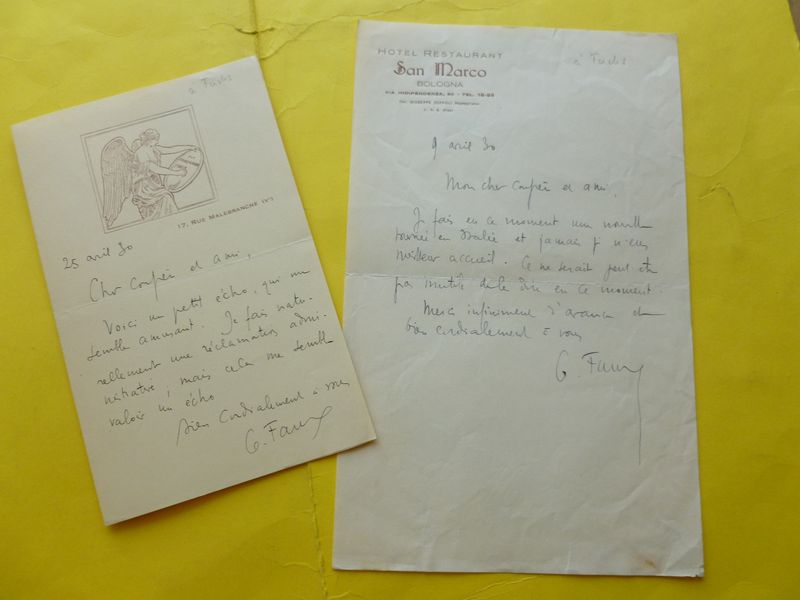 à Fuchs
17, RUE MALEBRANCHE (Vᵉ)
25 avril 30
Cher confrère et ami,
Voici un petit écho, qui me
semble amusant. Je fais natu-
rellement une réclamation admi-
nistrative, mais cela me semble
valoir un écho
Bien cordialement à vous
G. Faure
à Fuchs
HOTEL RESTAURANT
San Marco
BOLOGNA
VIA INDIPENDENZA, - TEL.
9 avril 30
Mon cher confrère et ami,
Je fais en ce moment une nouvelle
tournée en Italie et jamais je n'eus
meilleur accueil. Ce ne serait peut être
pas inutile de le dire en ce moment.
Merci infiniment d'avance et
bien cordialement à vous
G. Faure